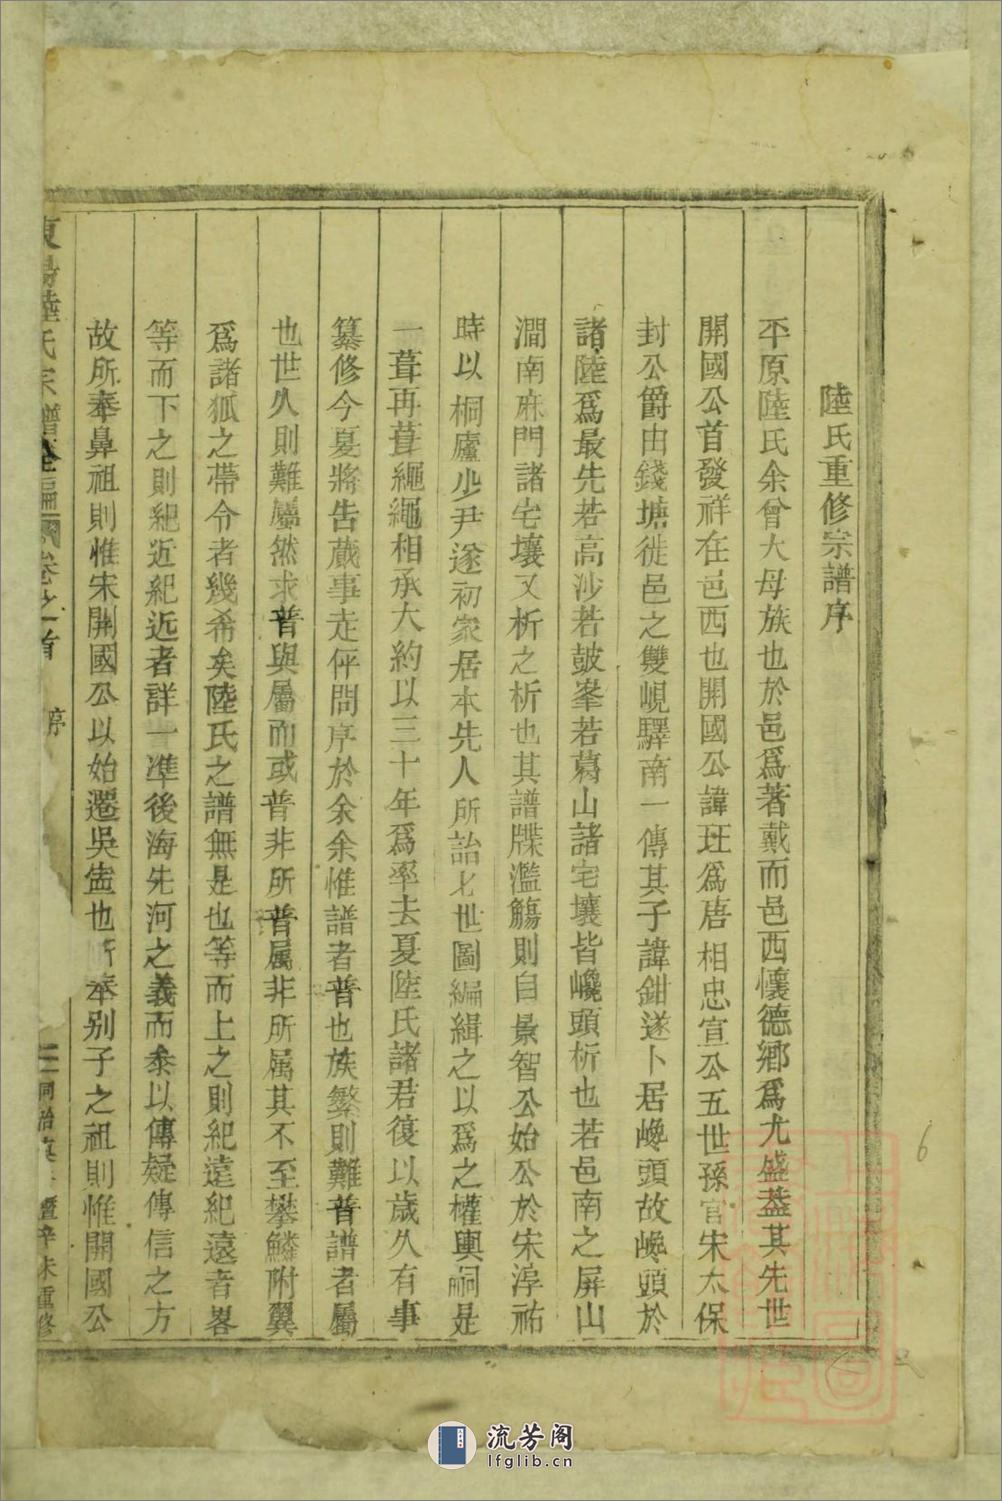 陸氏重修宗譜序
平原陸氏余曾大母族也於邑爲著戴而邑西懷德鄉爲尤盛葢其先世
開國公首發祥在邑西也開國公諱珏爲唐相忠宣公五世孫官宋太保
封公爵由錢塘徙邑之雙峴驛南一傳其子諱鉗遂卜居巉頭故巉頭於
諸陸爲最先若高沙若皷峯若葛山諸宅壤皆巉頭析也若邑南之屏山
澗南麻門諸宅壤又析之析也其譜牒濫觴則自景智公始公於宋淳祐
時以桐廬少尹遂初家居本先人所詒七世圖編緝之以爲之權輿嗣是
一葺再葺繩繩相承大約以三十年爲率去夏陸氏諸君復以歲久有事
纂修今夏將告蕆事走伻問序於余余惟譜者普也族繁則難普譜者屬
也世久則難屬然求普與屬而或普非所普屬非所屬其不至攀鱗附翼
爲諸狐之帶令者幾希矣陸氏之譜無是也等而上之則紀遠紀遠者畧
等而下之則紀近紀近者詳一準後海先河之義而叅以傳疑傳信之方
故所奉鼻祖則惟宋開國公以始遷吳盡也所奉别子之祖則惟開國公
東陽陸氏宗譜全編 卷之首 序 二 同治 辛未重修
6
流芳阁
lfglib.cn